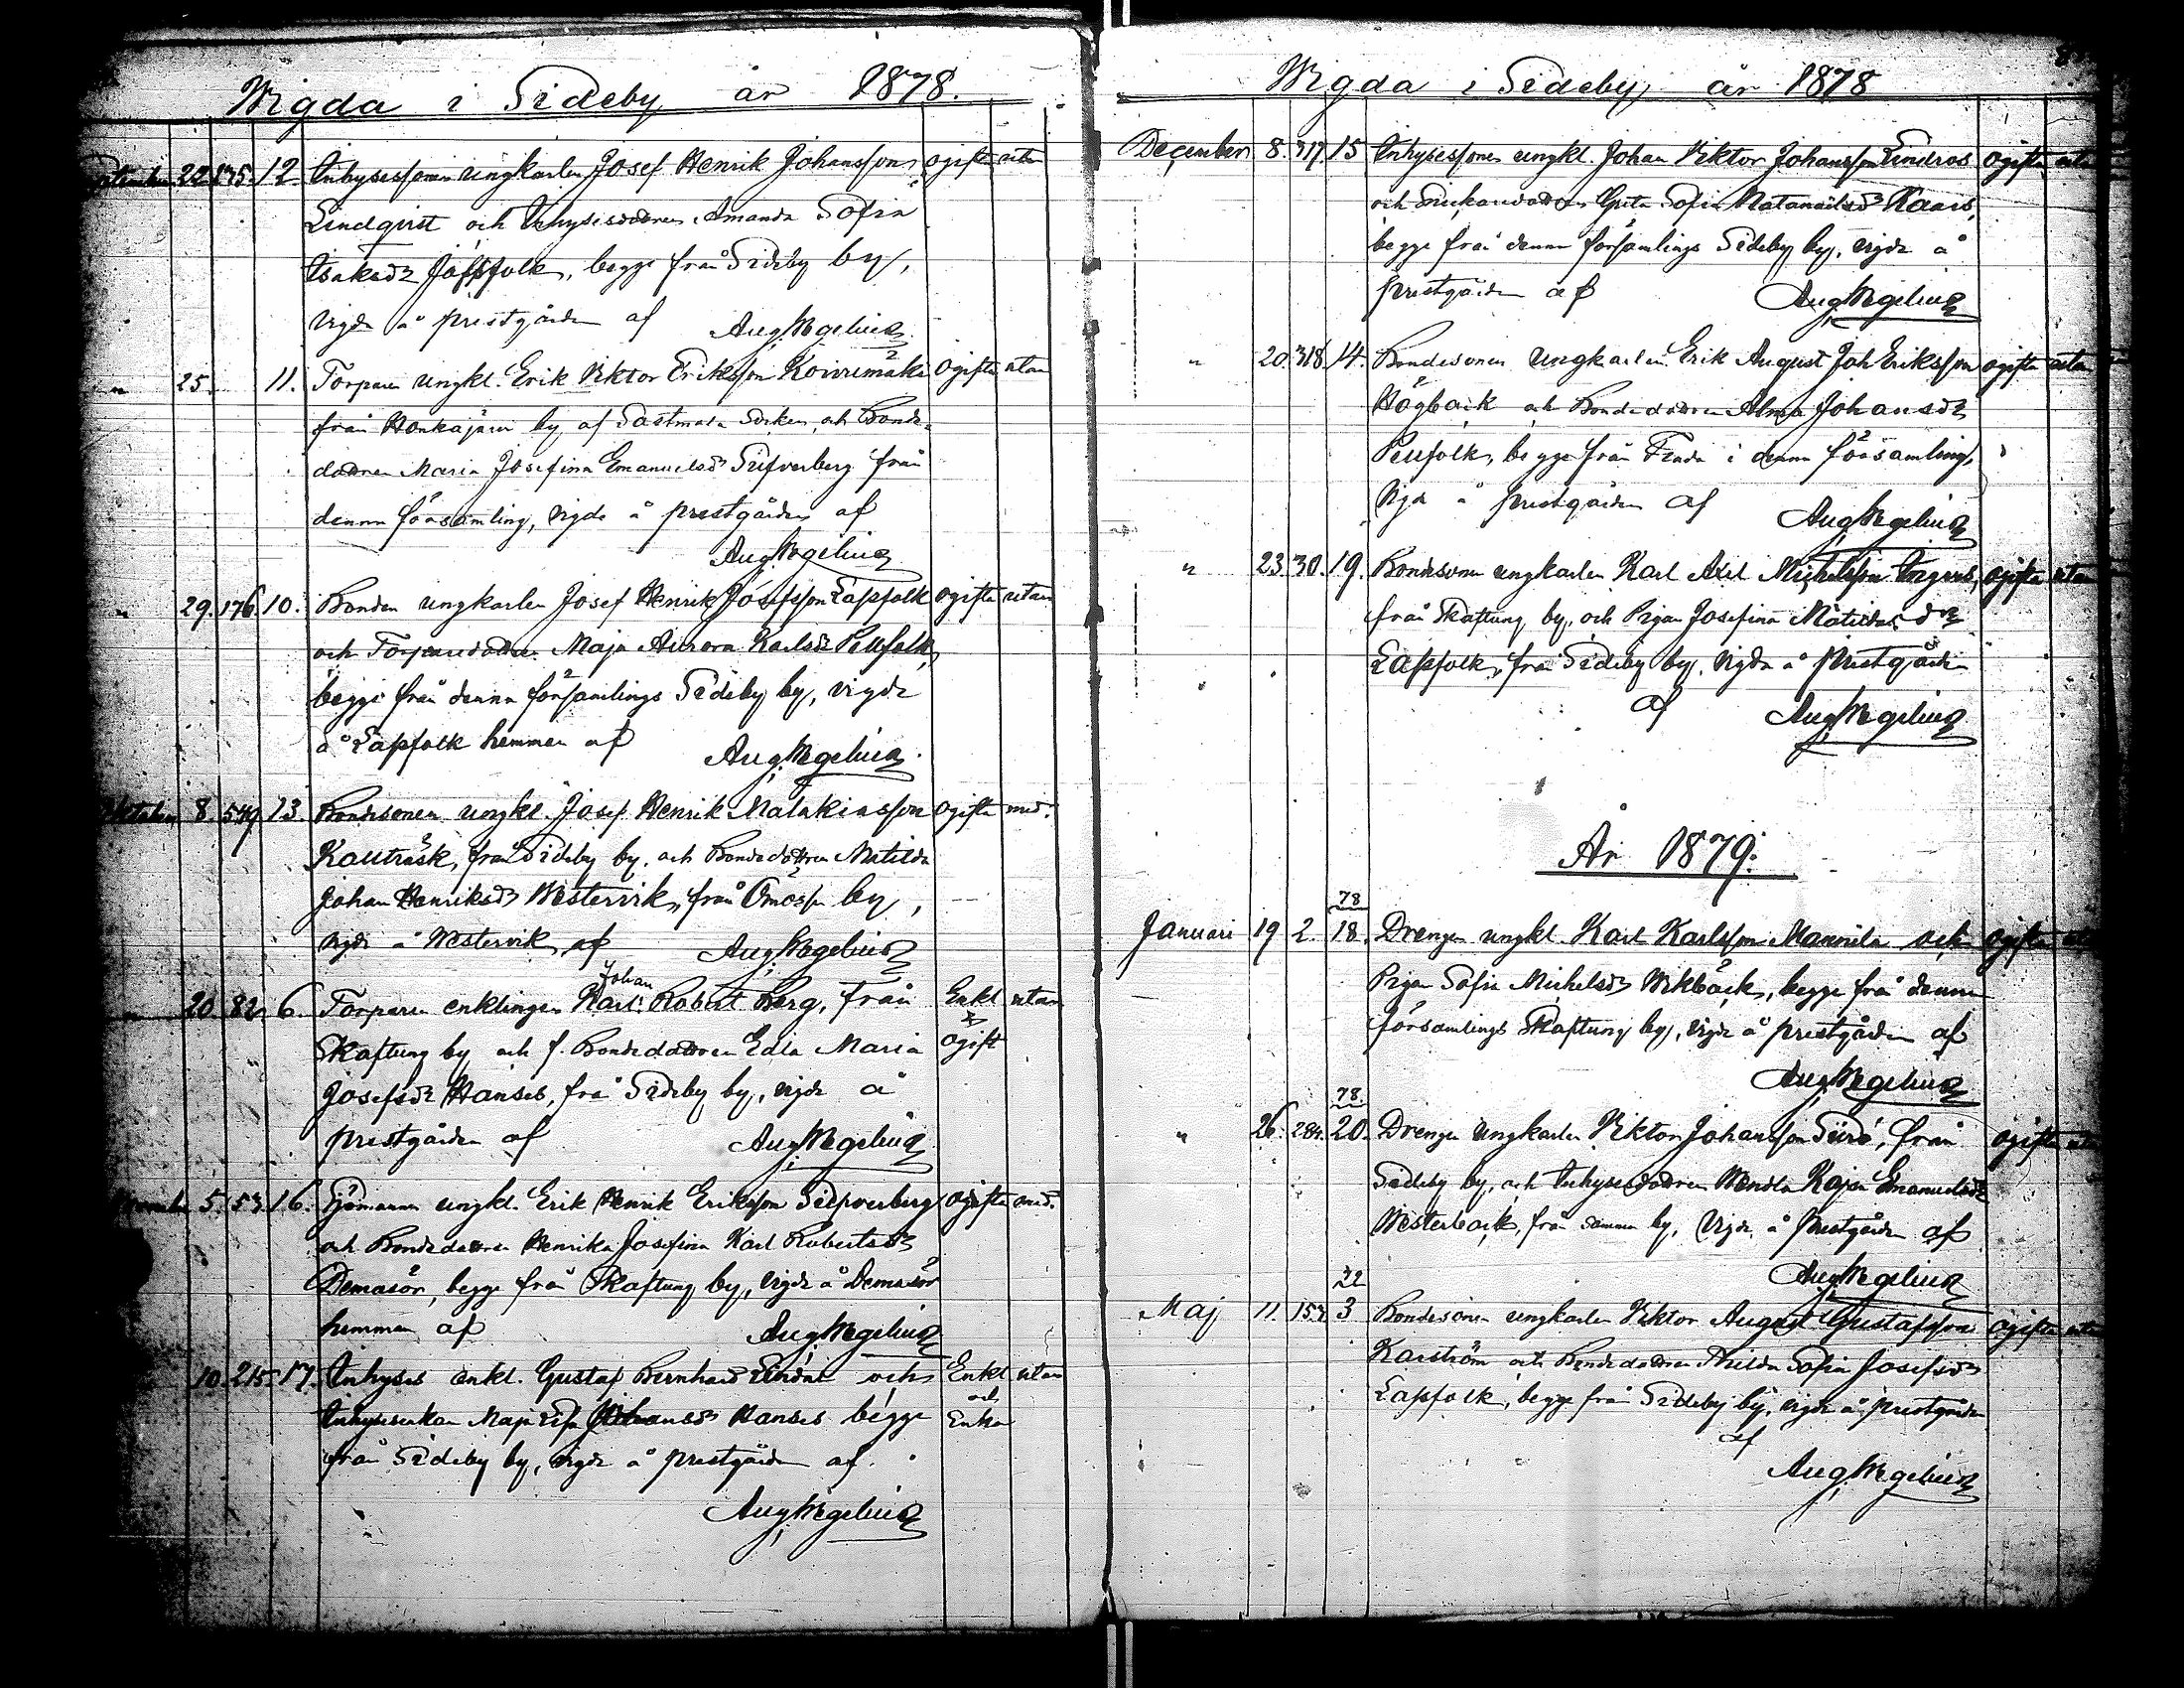 Wigda i Sideby år 1878.
September 22. 175. 12. Inhysessonen ungkarlen Josef Henrik Johansson ogifta utan
Lindqvist och Inhysesdottren Amanda Sofia
Isaksdr Jåffsfolk, begge från Sideby by,
vigde å prestgården af Aug. Wegelius
" 25. 11. Torparen ungkl. Erik Viktor Eriksson Koivumäki ogifta utan
från Honkajärvi by af Sastmola Socken, och Bonde-
dottren Maria Josefina Emanuelsdr Silfverberg från
denna församling, vigde å prestgården af
Aug. Wegelius
" 29. 176. 10. Bonden ungkarlen Josef Henrik Josefsson Lapfolk ogifta utan
och Torparedottren Maja Aurora Karlsdr Pellfolk,
begge från denna församlings Sideby by, vigde
å Lapfolk hemman af Aug. Wegelius.
Oktober 8. 549. 13. Bondesonen ungkl. Josef Henrik Malakiasson ogifta med.
Kallträsk, från Sideby by, och Bondedottren Matilda
Johan Henriksdr Westervik, från Ömossa by,
vigde å Westervik af Aug. Wegelius
Johan
" 20. 82. 6. Torparen enklingen Karl Robert Berg, från Enkl utan
Skaftung by och f. Bondedottren Edla Maria ogift
Josefsdr Hanses, från Sideby by, vigde å
prestgården af Aug. Wegelius
November 5. 53. 16. Sjömannen ungkl. Erik Henrik Eriksson Silfverberg ogifta med.
och Bondedottren Henrika Josefina Karl Robertsdr
Demasör, begge från Skaftung by, vigde å Demasör
hemman af Aug. Wegelius
10. 215. 17. Inhyses enkl. Gustaf Bernhard och Enkl utan
Inhysesenkan Maja Lisa Johansdr Hanses begge och Enka
från Sideby by, vigde å prestgården af.
Aug. Wegelius
Wigda i Sideby, år 1878
December 8. 317. 15 Inhysessonen ungkl. Johan Viktor Johansson Lindros ogifta utan
och Greta Sofia Natanaelsdr
begge från denna församlings Sideby by, vigde å
prestgården af Aug. Wegelius
" 20. 318. 14. Bondesonen Ungkarlen Erik August Joh Eriksson ogifta utan
Högback och Bondedottren Alma Johansdr
Pellfolk, begge från i denna församling,
vigde å prestgården af Aug. Wegelius
" 23. 30. 19. Bondesonen ungkarlen Karl Axel Michelsson Ingves, ogifta utan
från Skaftung by, och Pigan Josefina Matildas dr
Lapfolk, från Sideby by, vigde å Prestgården
af Aug. Wegelius
År 1879.
78
Januari 19 2. 18. Drengen ungkl. Karl Karlsson Mannila och ogifta utan
Pigan Sofia Michelsdr Wikbäck, begge från denna
församlings Skaftung by, vigde å prestgården af
Aug. Wegelius
78.
" 26. 284. 20. Drengen Ungkarlen Viktor Johansson från ogifta utan
Sideby by, och Inhysesdottren Wendla Kajsa Emanuelsdr
Westerback, från samma by, vigde å prestgården af
Aug. Wegelius
22
Maj 11. 153. 3 Bondesonen ungkarlen Viktor August Gustafsson ogifta utan
Karström och Bondedottren Hilda Sofia Josefsdr
Lapfolk, begge från Sideby by, vigde å prestgården
af
Aug. Wegelius